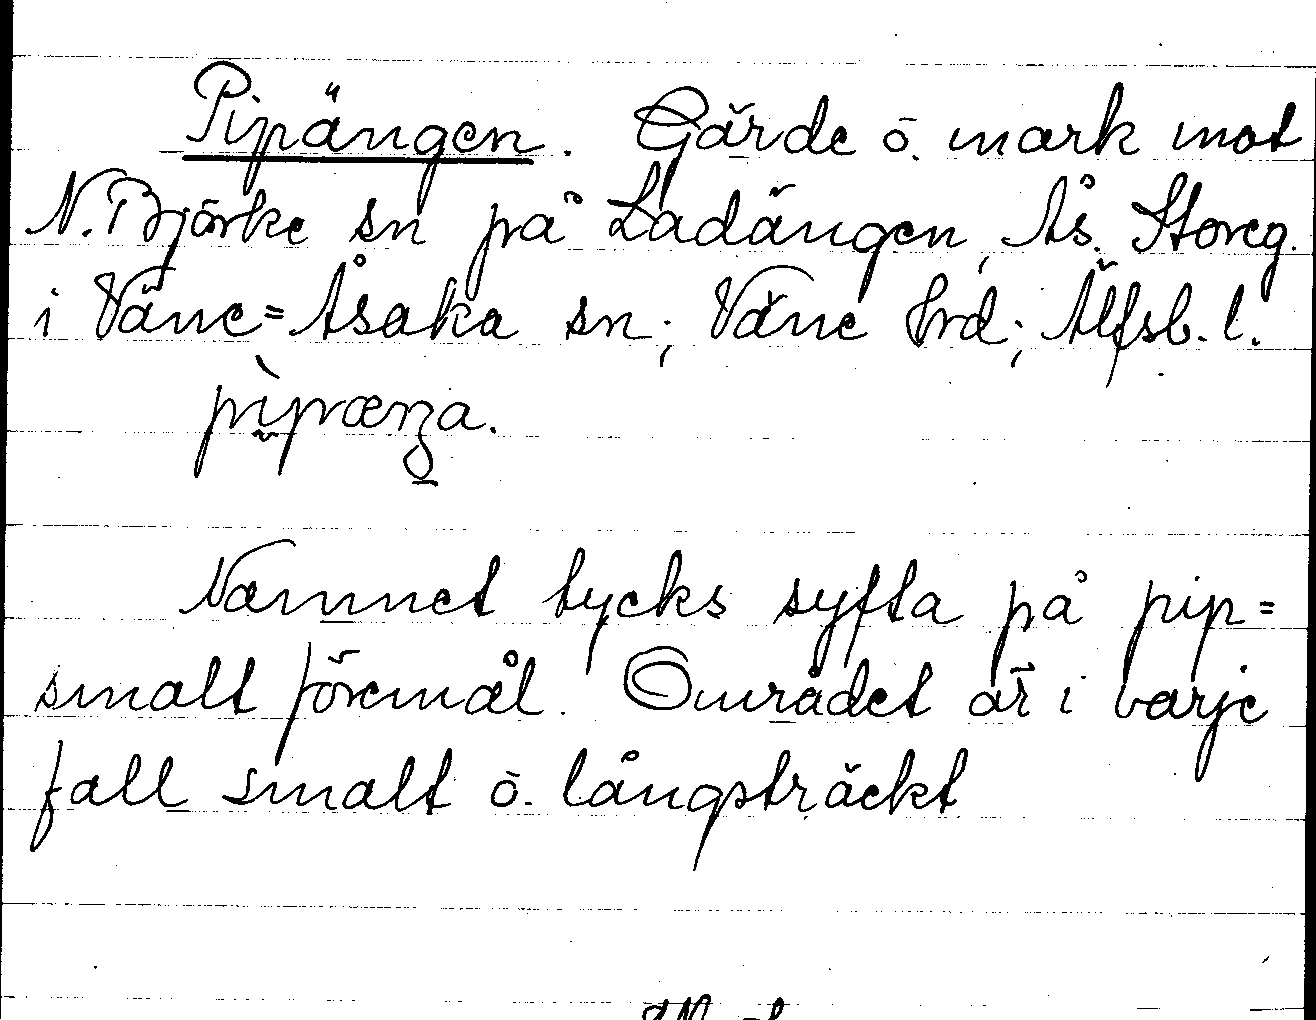 Pipängen. Gärde o. mark mot
N. Björke sn på Ladängen, Ås. Storeg.
i Väne=Åsaka sn; Väne hrd; Älfsb. l.
Namnet tycks syfta på pip=
smalt föremål. Området är i varje
fall smalt o. långsträckt